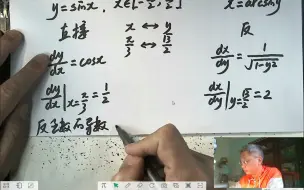 y=sinx, x∈[-π/2, π/2]
x=arcsiny
直接 x ↔ y 反
π/3 ↔ √3/2
dy/dx = cosx
dx/dy = 1/√(1-y²)
dy/dx|x=π/3 = 1/2
dx/dy|y=√3/2 = 2
反函数的导数